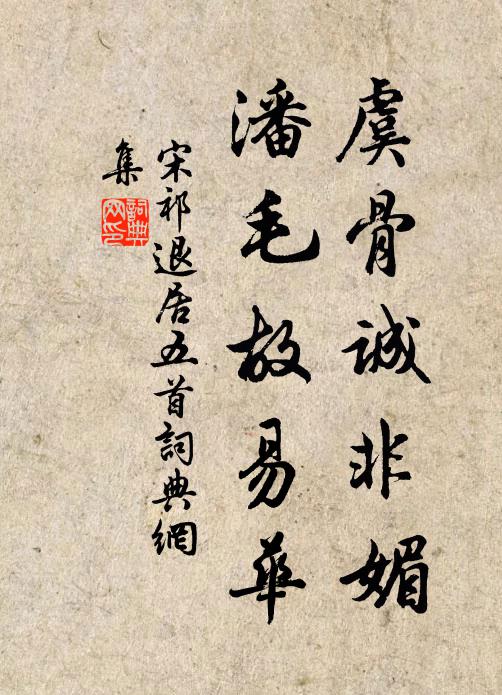 虞骨誠非媚
潘毛故易華
宋祁退居五首詞典網
集
詞典
网印